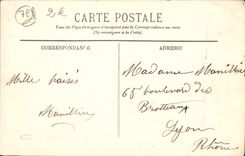 78
CARTE POSTALE
Tous les Pays étrangers n'acceptent pas la Correspondance au recto.
(Se renseigner à la Poste).
CORRESPONDANCE
ADRESSE
Mille baisés
Madame
65 boulevard des
Brotteaux
Lyon
Rhône